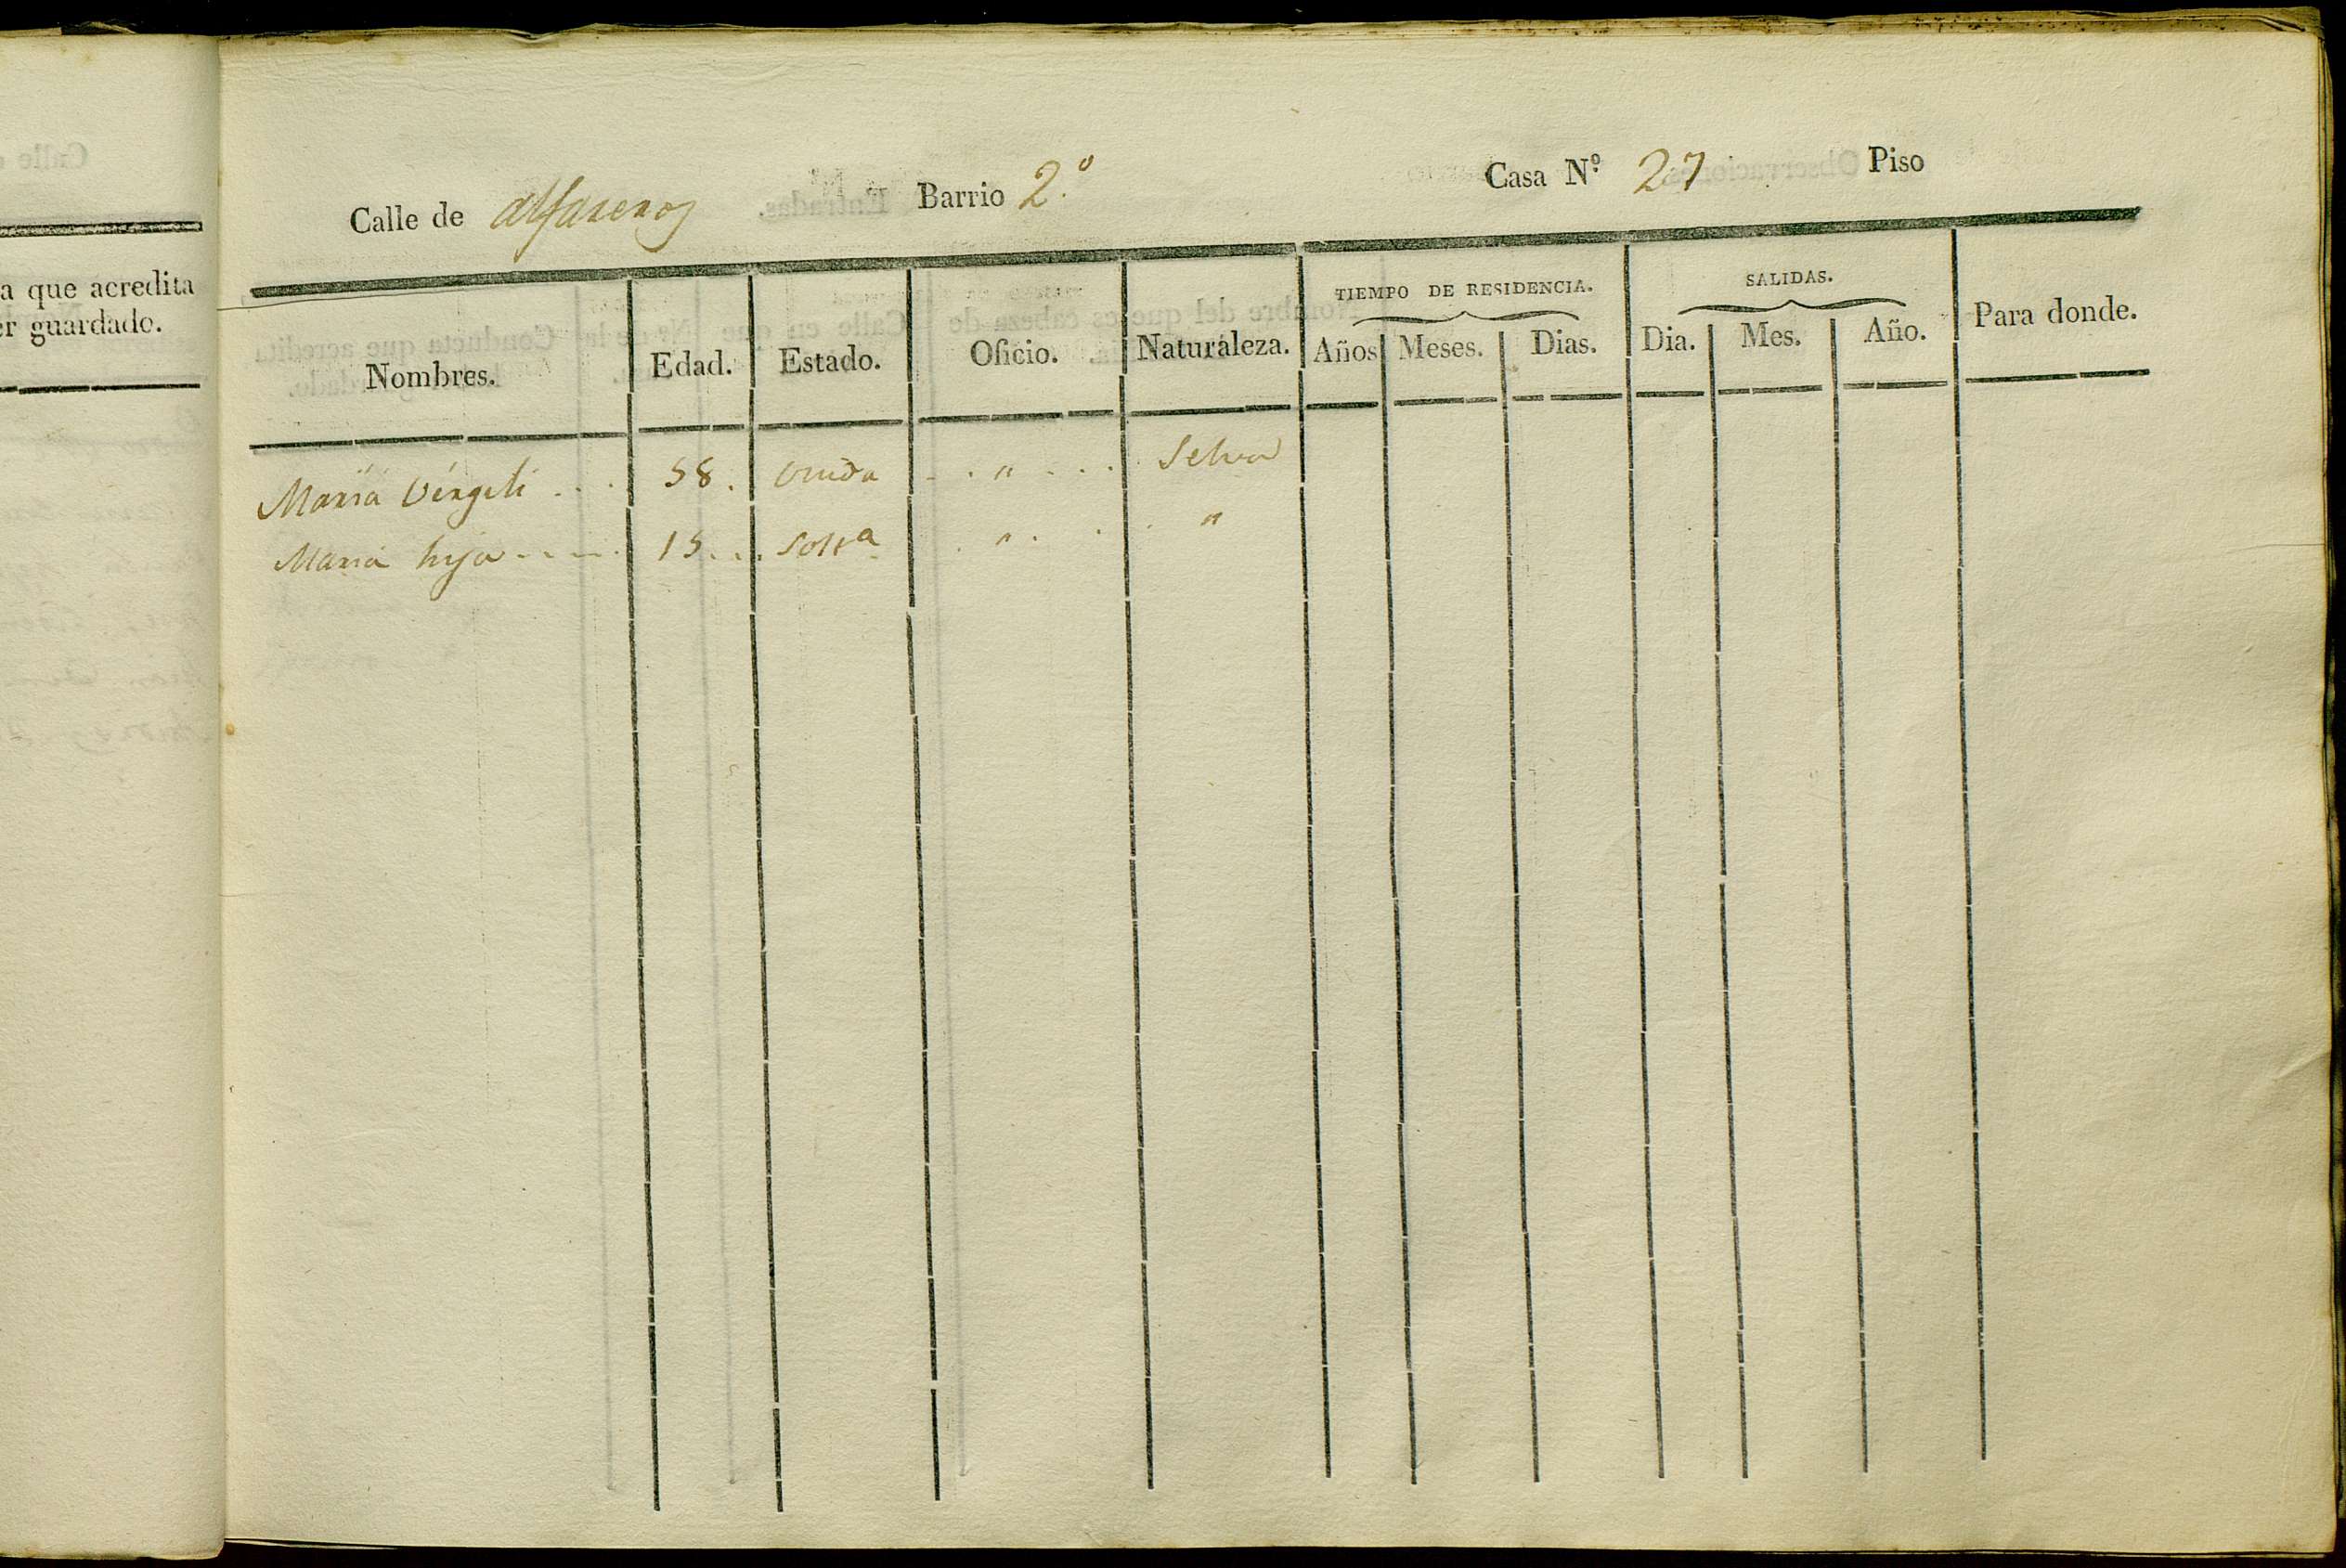 Calle de alfareros Barrio 2.º Casa Nº 27 Piso
a que acredita
er guardado.
TIEMPO DE RESIDENCIA. SALIDAS.
Nombres. Edad. Estado. Oficio. Naturaleza. Años Meses. Dias. Dia. Mes. Año. Para donde.
Maria Virgili . . . 58 . viuda . . " . . . Selva
Maria hija . . . . . 15 . . . Solta . " . . . "